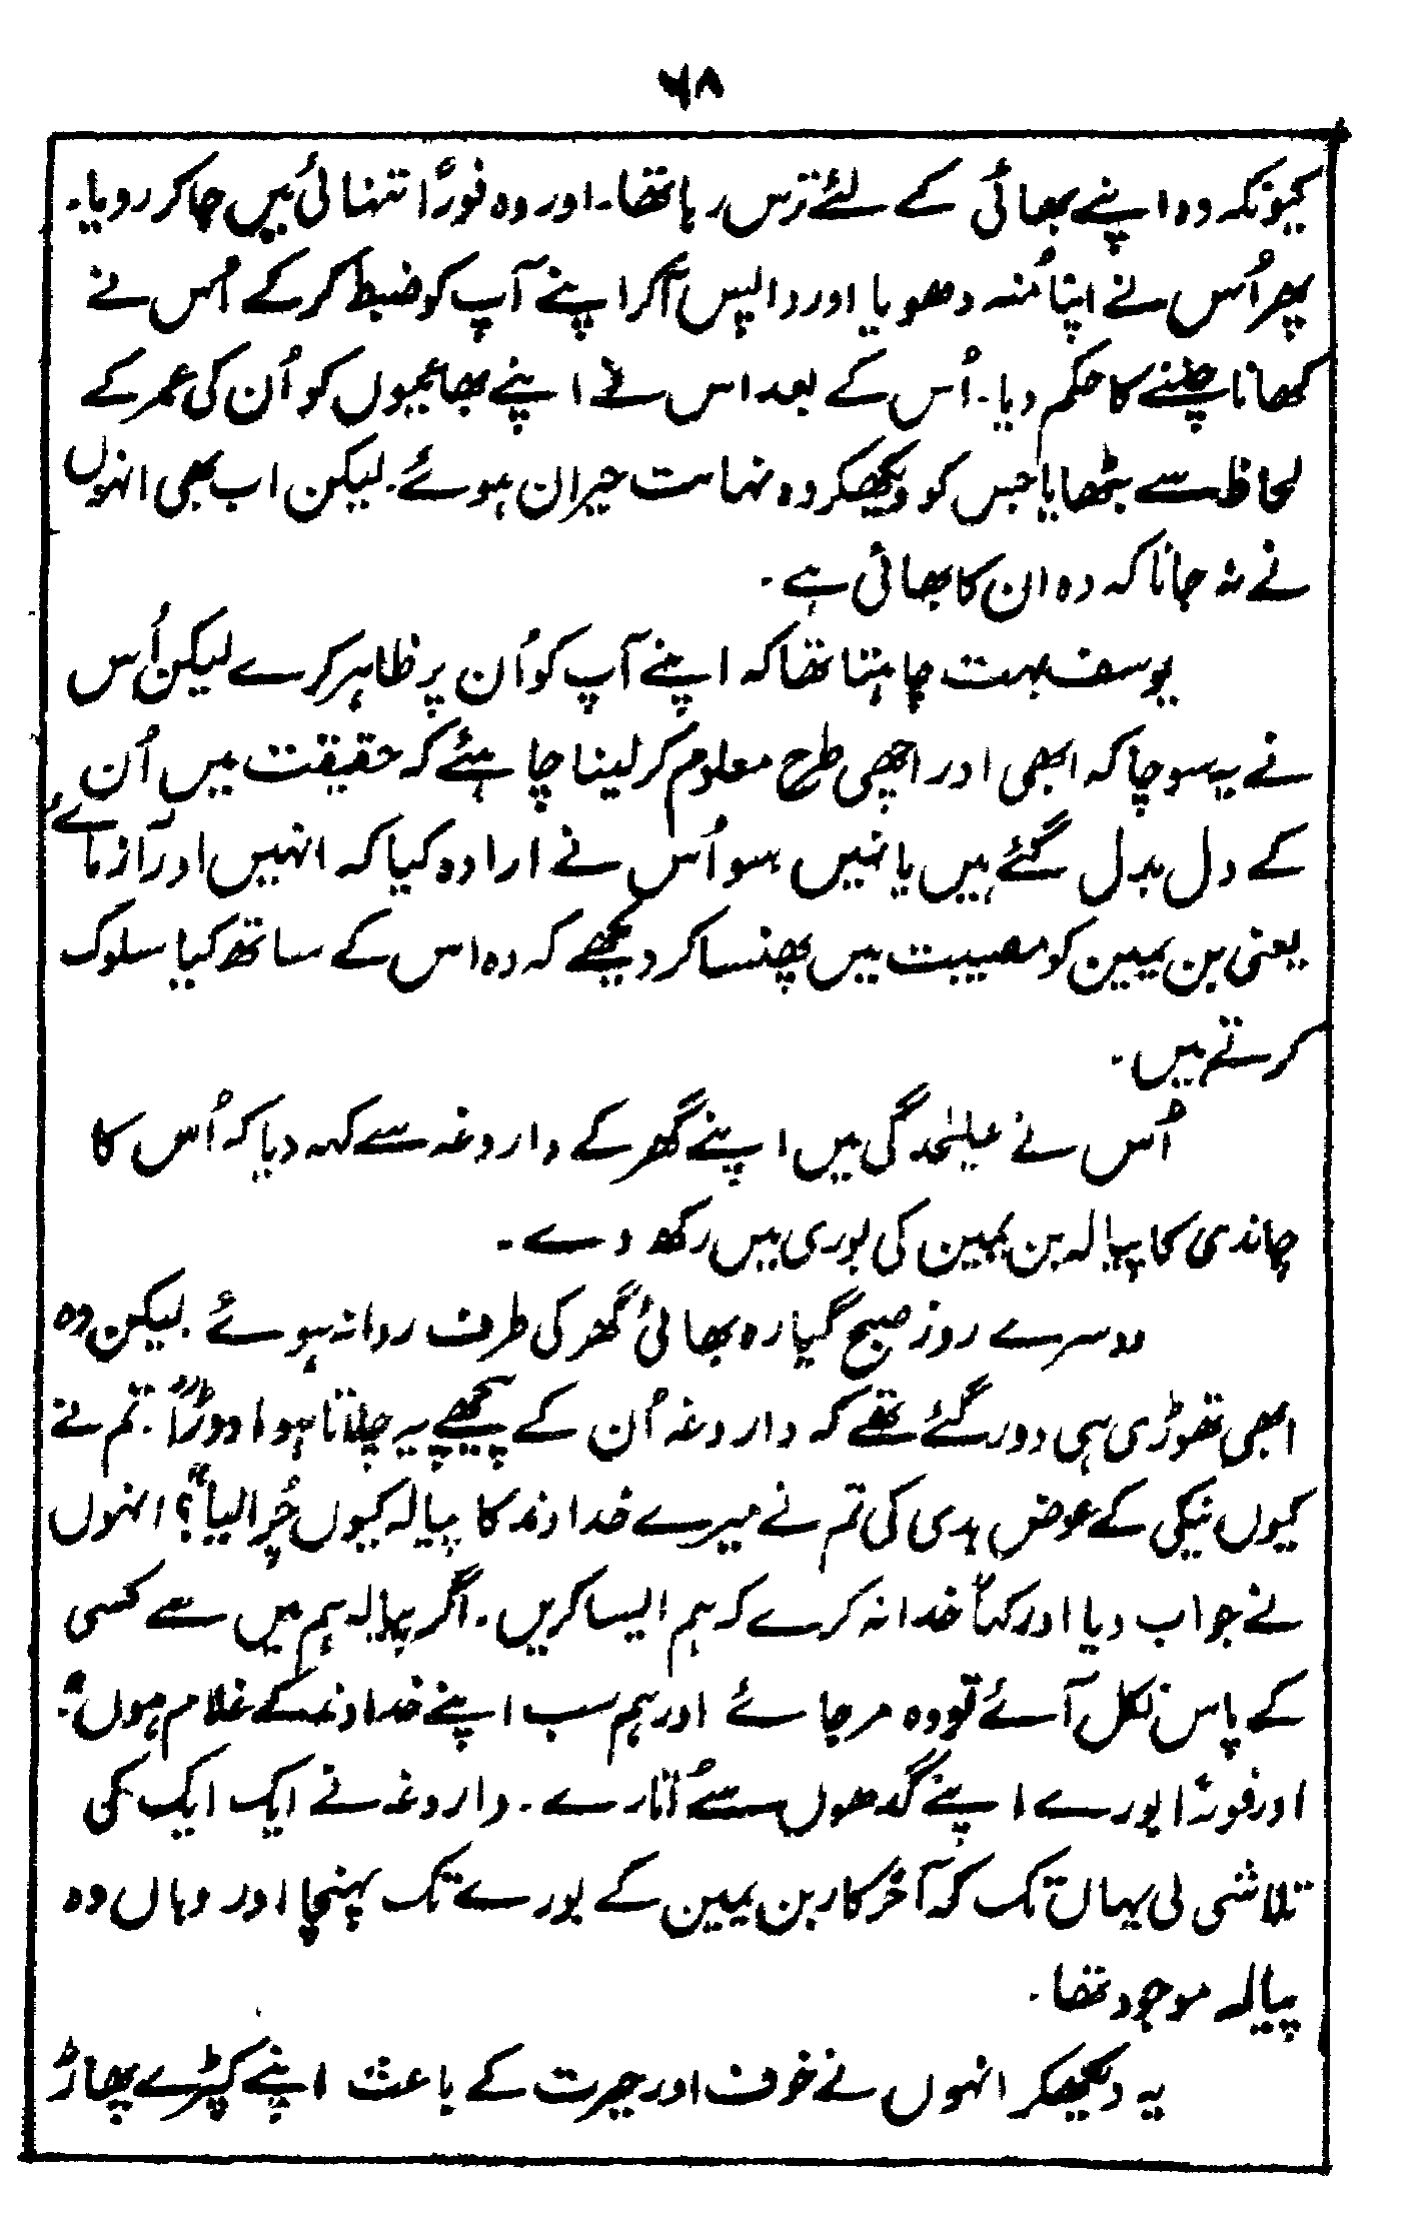 ۶۸
کیونکہ وہ اپنے بھائی کے لئے ترس رہا تھا۔ اور وہ فوراً تنہائی میں جا کر رویا۔
پھر اُس نے اپنا مُنہ دھویا اور واپس آکر اپنے آپ کو ضبط کر کے اُس نے
کھانا چننے کا حکم دیا۔ اُس کے بعد اس نے اپنے بھائیوں کو اُن کی عمر کے
لحاظ سے بٹھایا جس کو دیکھکر وہ نہایت حیران ہوئے۔ لیکن اب بھی انہوں
نے نہ جانا کہ وہ ان کا بھائی ہے۔
یوسف بہت چاہتا تھا کہ اپنے آپ کو اُن پر ظاہر کرے لیکن اُس
نے یہ سوچا کہ ابھی اور اچھی طرح معلوم کر لینا چاہئے کہ حقیقت میں اُن
کے دل بدل گئے ہیں یا نہیں سو اُس نے ارادہ کیا کہ انہیں اور آزمائے
یعنی بن یمین کو مصیبت میں پھنسا کر دیکھے کہ وہ اس کے ساتھ کیا سلوک
کرتے ہیں۔
اُس نے علیٰحدگی میں اپنے گھر کے داروغہ سے کہہ دیا کہ اُس کا
چاندی کا پیالہ بن یمین کی بوری میں رکھ دے۔
دوسرے روز صبح گیارہ بھائی گھر کی طرف روانہ ہوئے۔ لیکن وہ
ابھی تھوڑی ہی دور گئے تھے کہ داروغہ اُن کے پیچھے یہ چلاتا ہوا دوڑا "تم نے
کیوں نیکی کے عوض بدی کی تم نے میرے خداوند کا پیالہ کیوں چُرا لیا"؟ انہوں
نے جواب دیا اور کہا "خدا نہ کرے کہ ہم ایسا کریں۔ اگر پیالہ ہم میں سے کسی
کے پاس نکل آئے تو وہ مر جائے اور ہم سب اپنے خداوند کے غلام ہوں"۔
اور فوراً بورے اپنے گدھوں سے اُتارے۔ داروغہ نے ایک ایک کی
تلاشی لی یہاں تک کہ آخر کار بن یمین کے بورے تک پہنچا اور وہاں وہ
پیالہ موجود تھا۔
یہ دیکھکر انہوں نے خوف اور حیرت کے باعث اپنے کپڑے پھاڑ